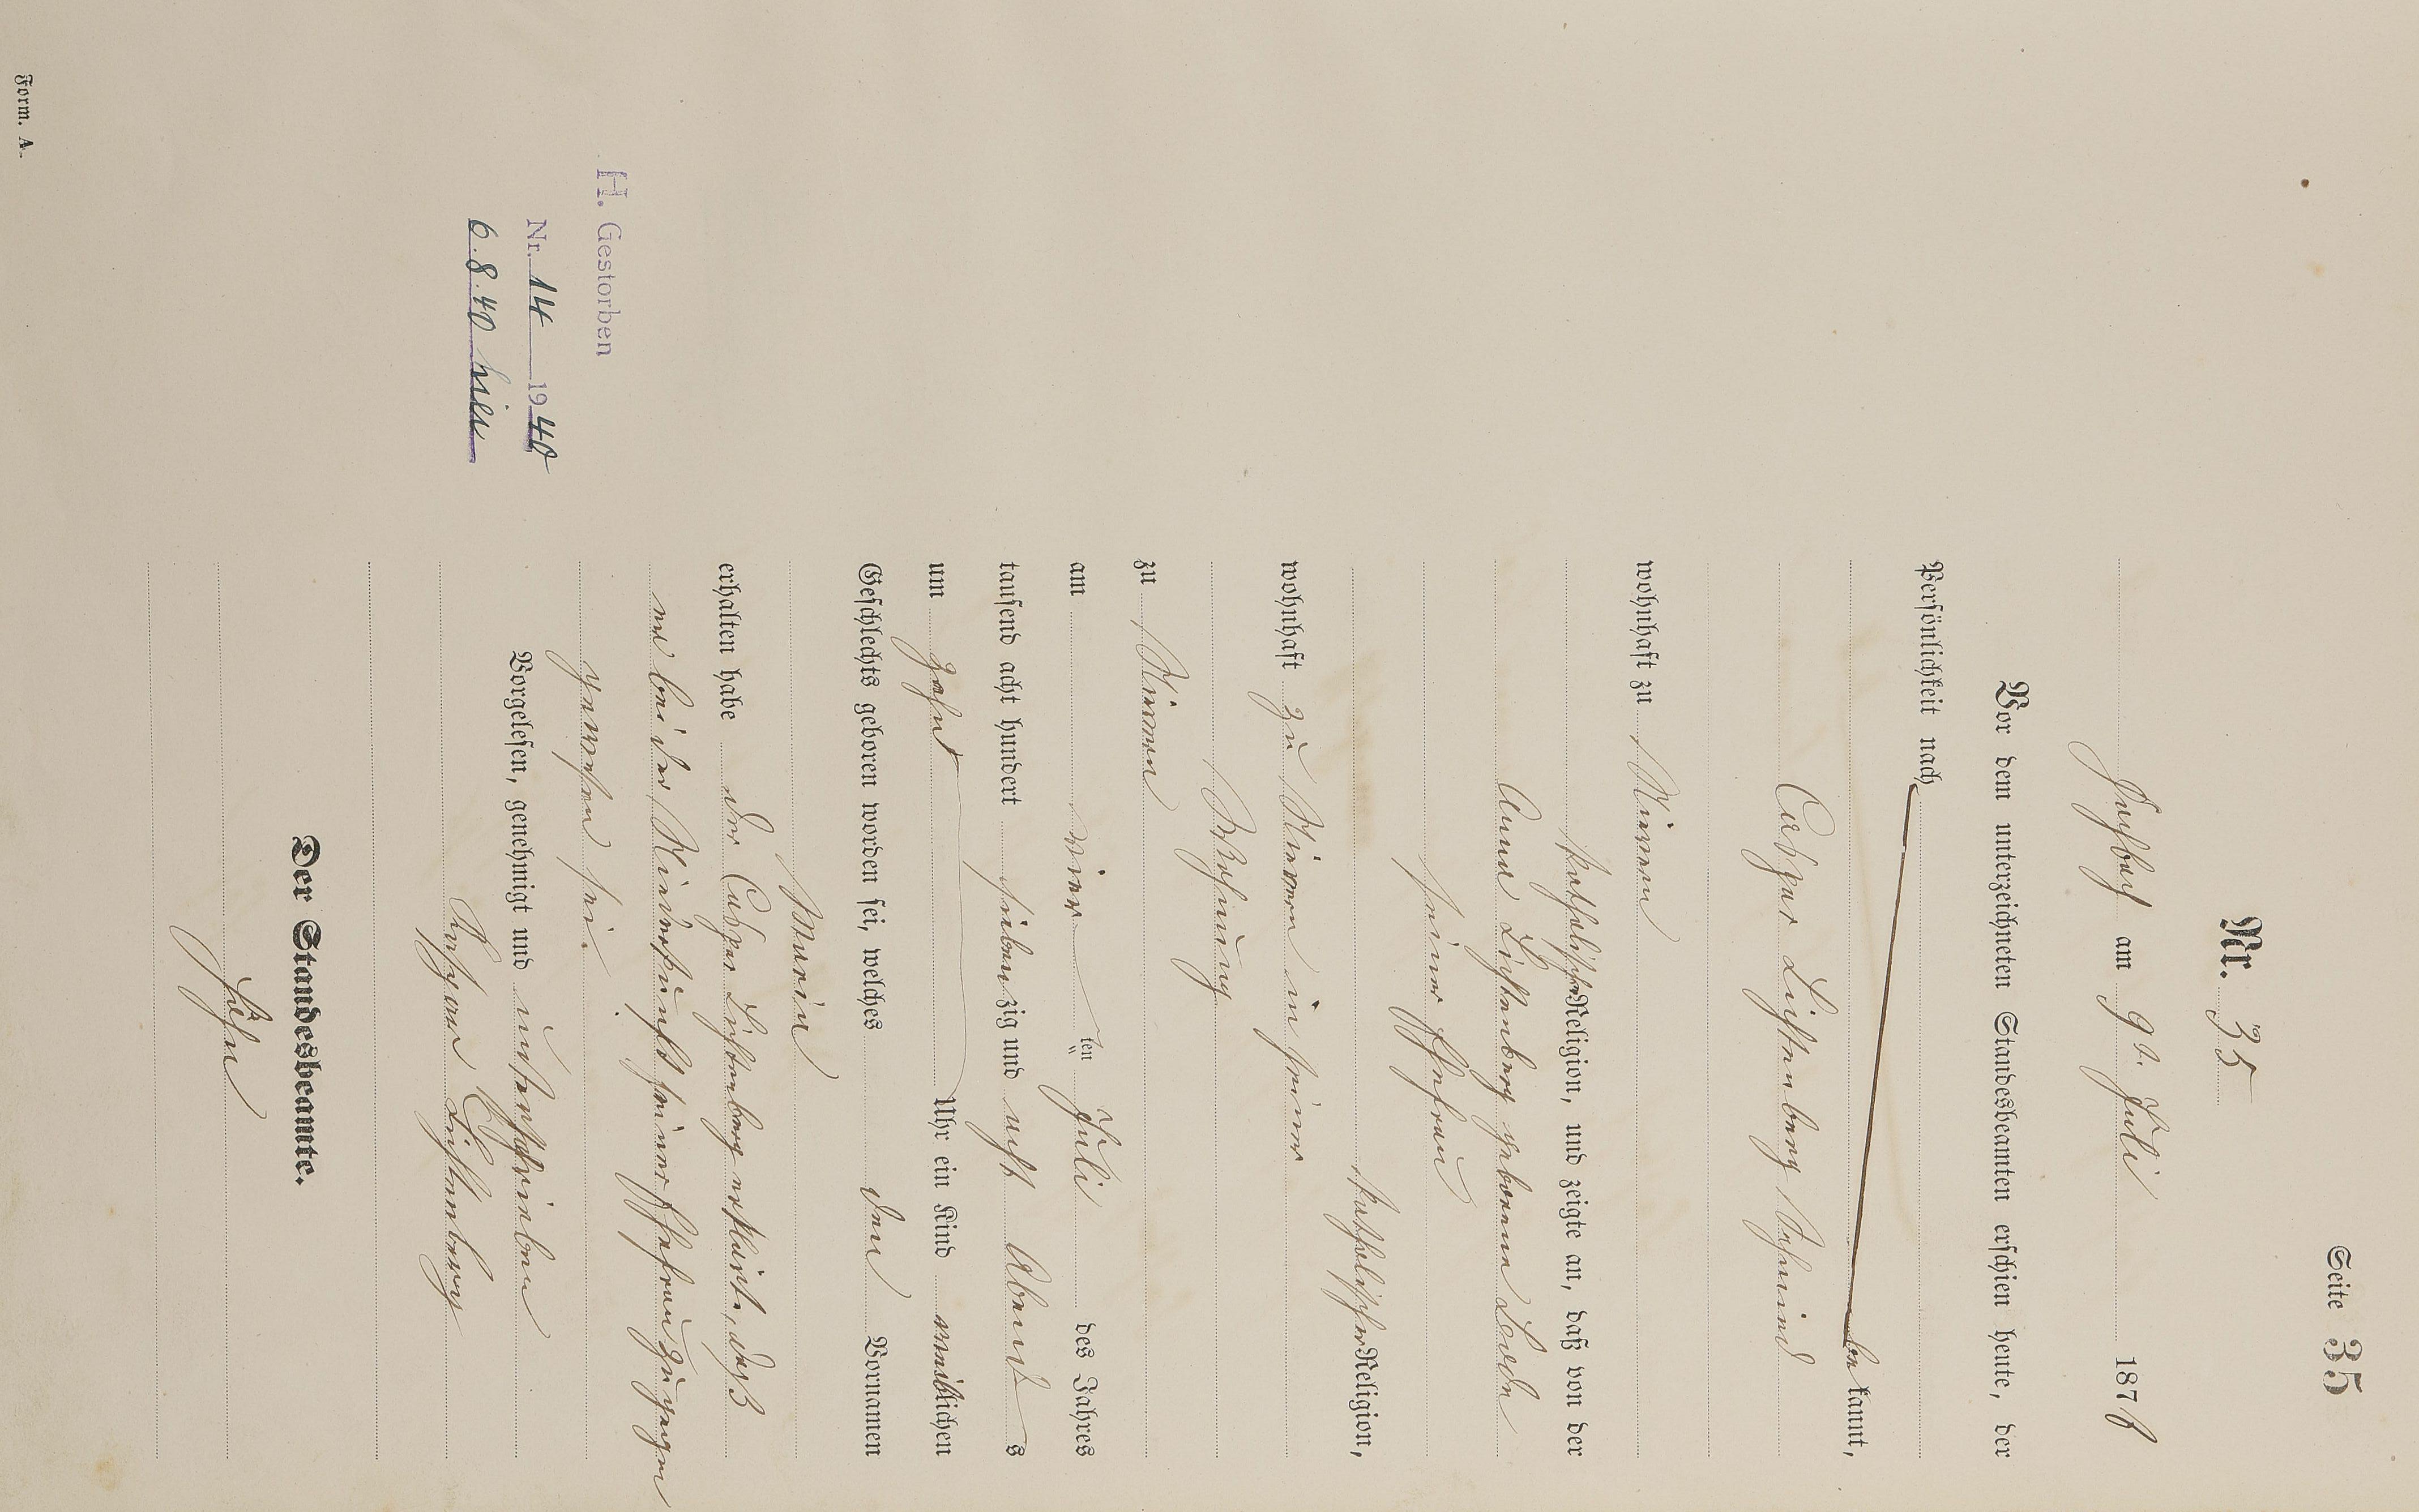 Seite 35
Nr. 35
am 9t. Juli 1878
Vor dem unterzeichneten Standesbeamten erschien heute, der
Persönlichkeit nach
bekannt,
Caspar Lichtenberg
wohnhaft zu
katholischer Religion, und zeigte an, daß von der
Anna Lichtenberg geborene
seiner Ehefrau
katholischer Religion,
wohnhaft zu in seiner
Wohnung
zu
am vier ten Juli des Jahres
tausend acht hundert siebenzig und acht Abends
um zehn Uhr ein Kind weiblichen
Geschlechts geboren worden sei, welches den Vornamen
Maria
erhalten habe der Caspar Lichtenberg erklärt, daß
er bei der Niederkunft seiner Ehefrau zugegen
gewesen sei.
Vorgelesen, genehmigt und unterschrieben
Lichtenberg
Der Standesbeamte.
H. Gestorben
Nr. 14 1940
6.8.40 hier
Form. A.